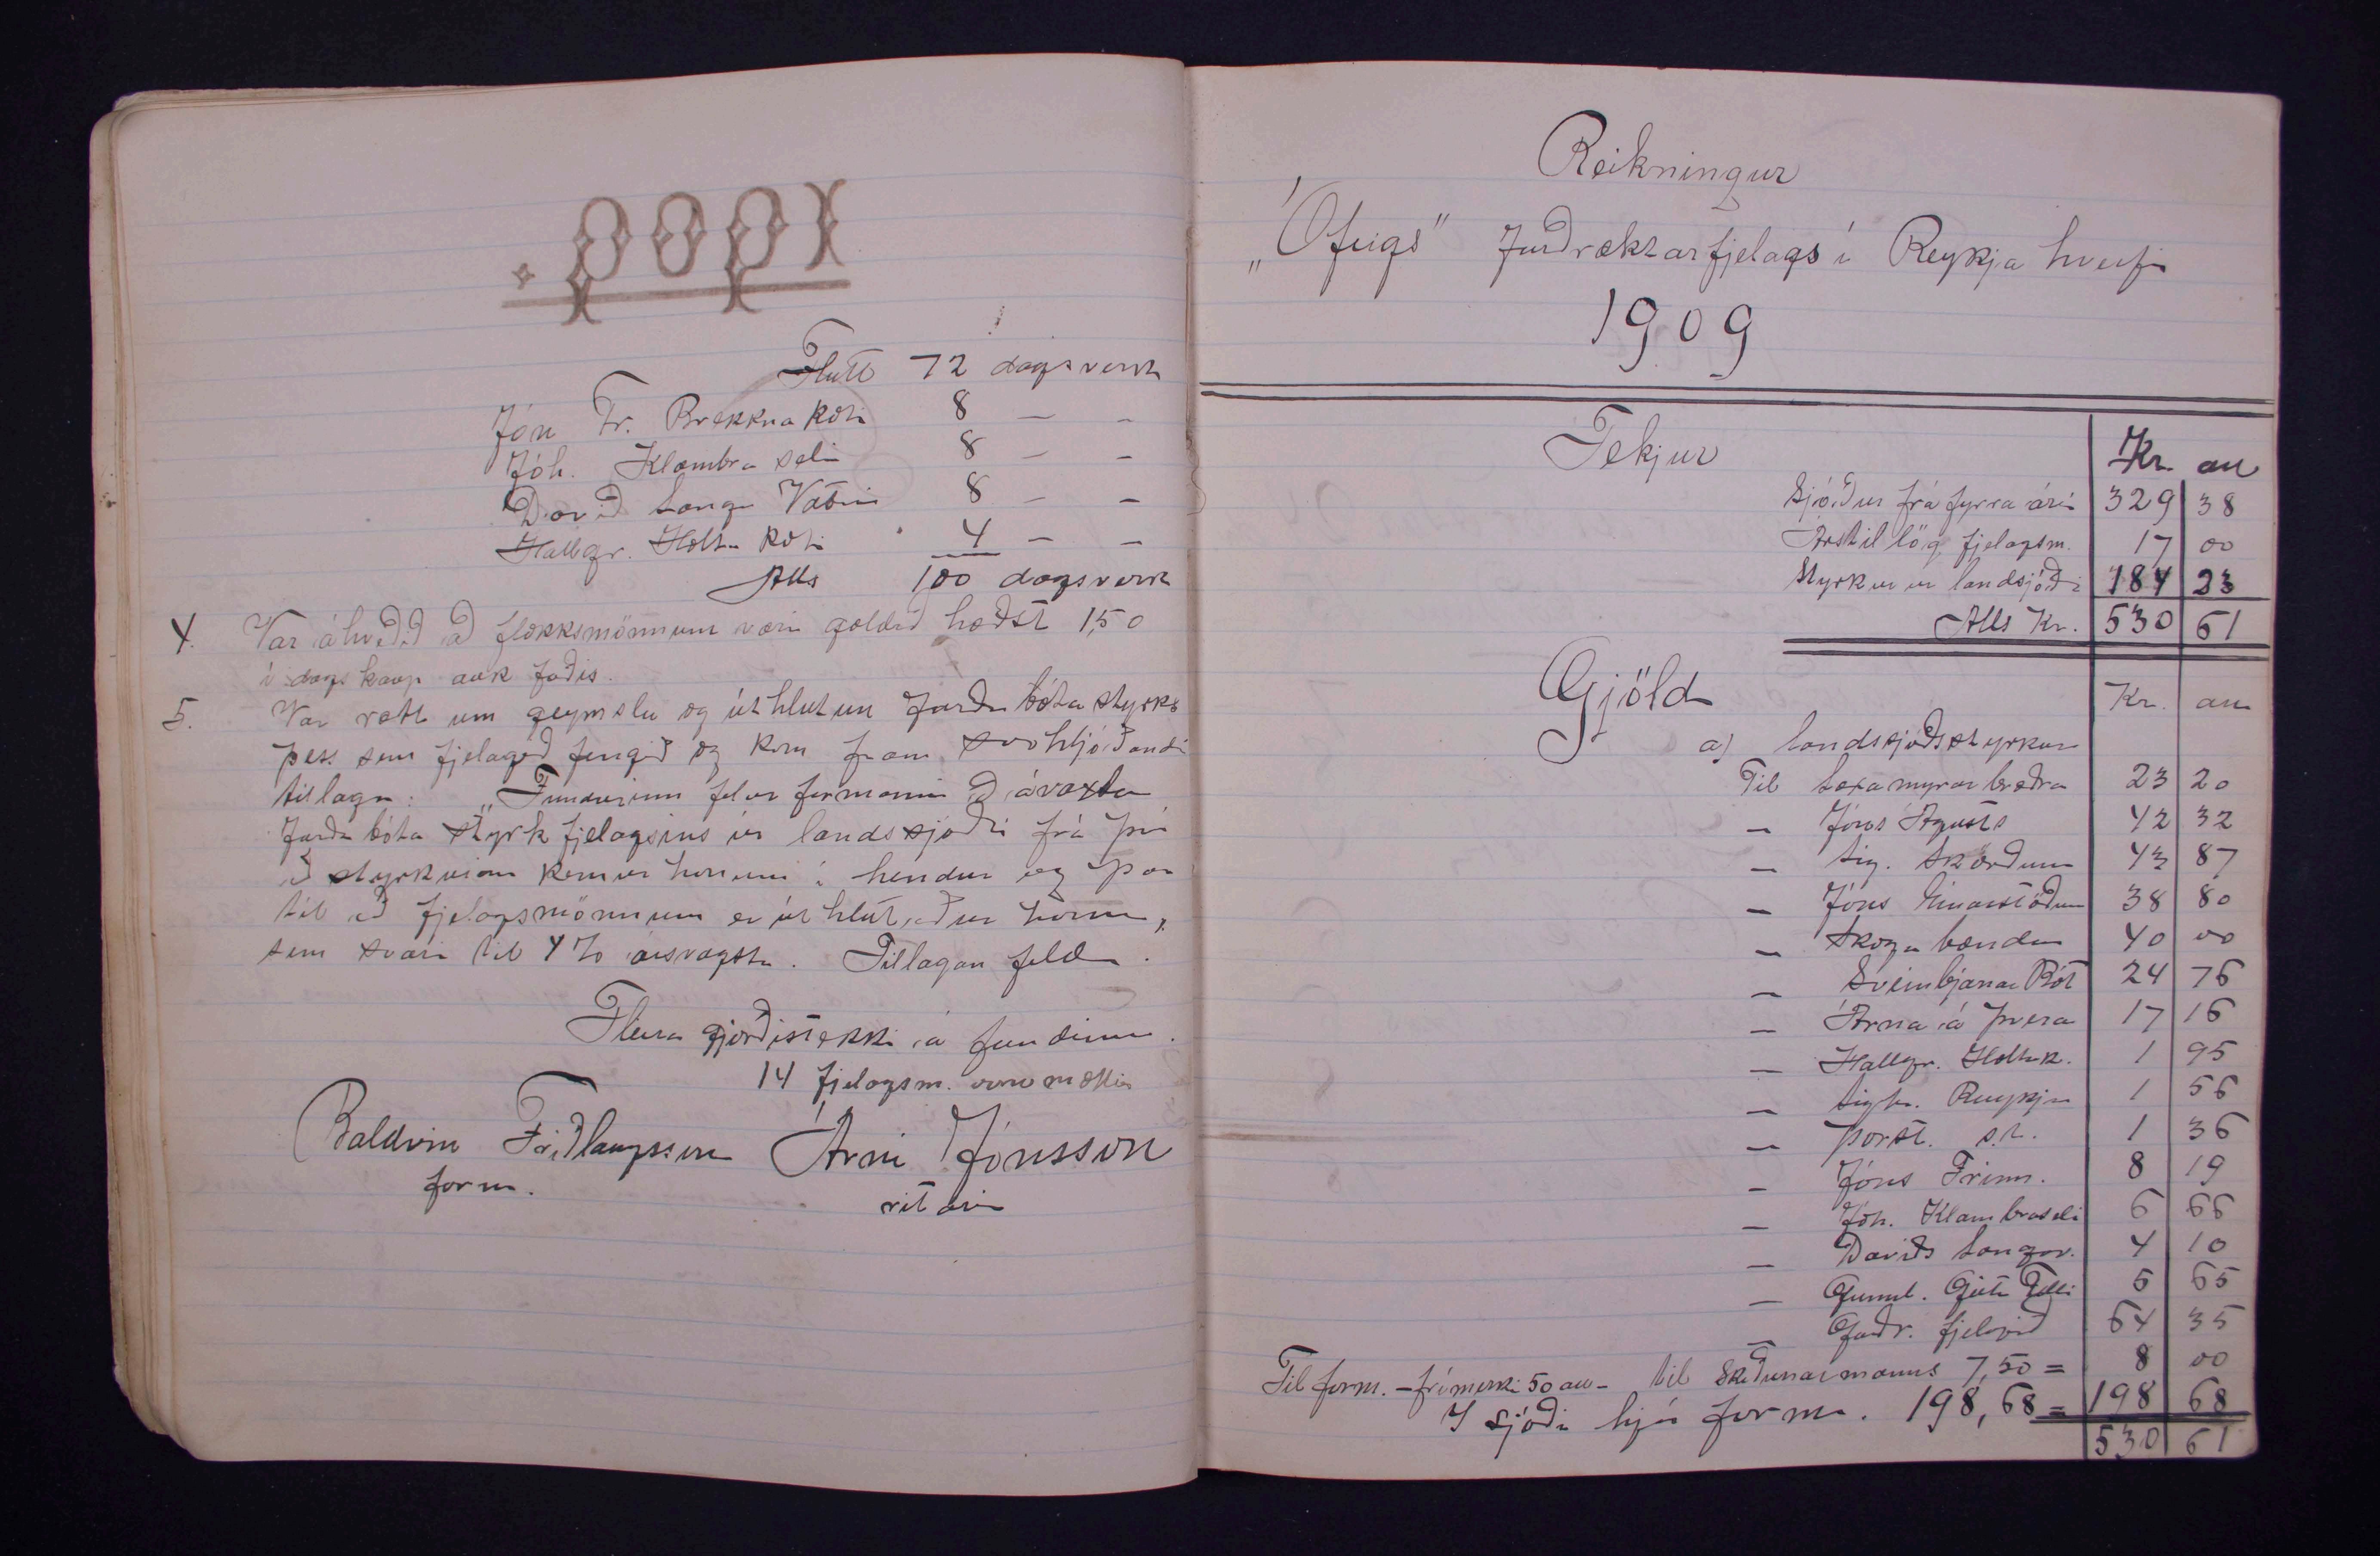 Flutt 72 dagsverk
Jón Fr. Brekknakoti 8 — –
Jóh. Klambraseli 8 — –
Davíð Langavatni 8 — –
Hallgr. Holtakoti 4 – –
Alls 100 dagsverk
4. Var ákveðið að flokksmönnum væri goldið hæðst 1,50
í dagskaup auk fæðis.
5. Var rætt um geymslu og úthlutun jarðabótastyrks
þess sem fjelagið fengið og kom fram svohljóðandi
tillaga: „Fundurinn felur formanni að ávaxta
jarðabótastyrk fjelagsins úr landssjóði frá því
að styrkurinn kemur honum í hendur og þar
til að fjelagsmönnum er úthlutaður hann,
sem svari til 4% ársvagsta. Tillagan feld.
Fleira gjörðist ekki á fundinum.
14 fjelagsm. voru mættir
Baldvin Friðlaugsson Árni Jónsson
form. ritari
Reikningur
„Ófeigs" Jarðræktarfjelags í Reykjahverfi
1909
Tekjur Kr. au
Sjóður frá fyrra ári 329 38
Árstillög fjelagsm. 17 00
Styrkur úr landsjóði 184 23
Alls Kr. 530 61
Gjöld Kr. au
a) landssjóðsstyrkur
Til Laxamýrar bræðra 23 20
– Jóns Ágústs 42 32
– Sig. Skörðum 43 87
– Jóns Einarstöðum 38 80
– Skóga bænda 40 00
– Sveinbjarnar Bót 24 76
– Árna á Þverá 17 16
– Hallgr. Holtak. 1 95
– Sigtr. Reykja 1 56
– Þorst. s.st. 1 36
– Jóns Frímm. 8 19
– Jóh. Klambraseli 6 66
– Davíðs Langav. 4 10
– Gunnl. Geitafelli 5 65
– Garðr. fjelagið 64 35
Til form. – frímerki 50 au – til skoðunarmanns 7,50 = 8 00
Í sjóði hjá form. 198,68 = 198 68
530 61